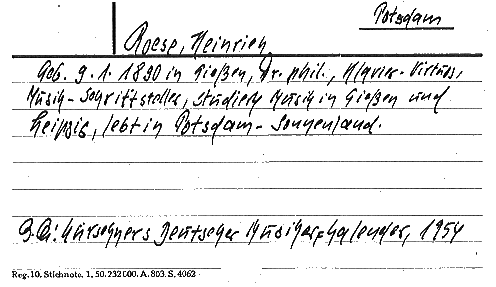 Potsdam
Roese, Heinrich
Geb. 9. 1. 1890 in Gießen, Dr. phil., Klavier-Virtuos,
Musik-Schriftsteller, Studierte Musik in Gießen und
Leipzig, lebt in Potsdam-Sonnenland.
B.Qu: Kürschners Deutscher Musikerkalender, 1954
Reg. 10. Stichnote. 1. 50. 232 000. A. 803. S. 4062